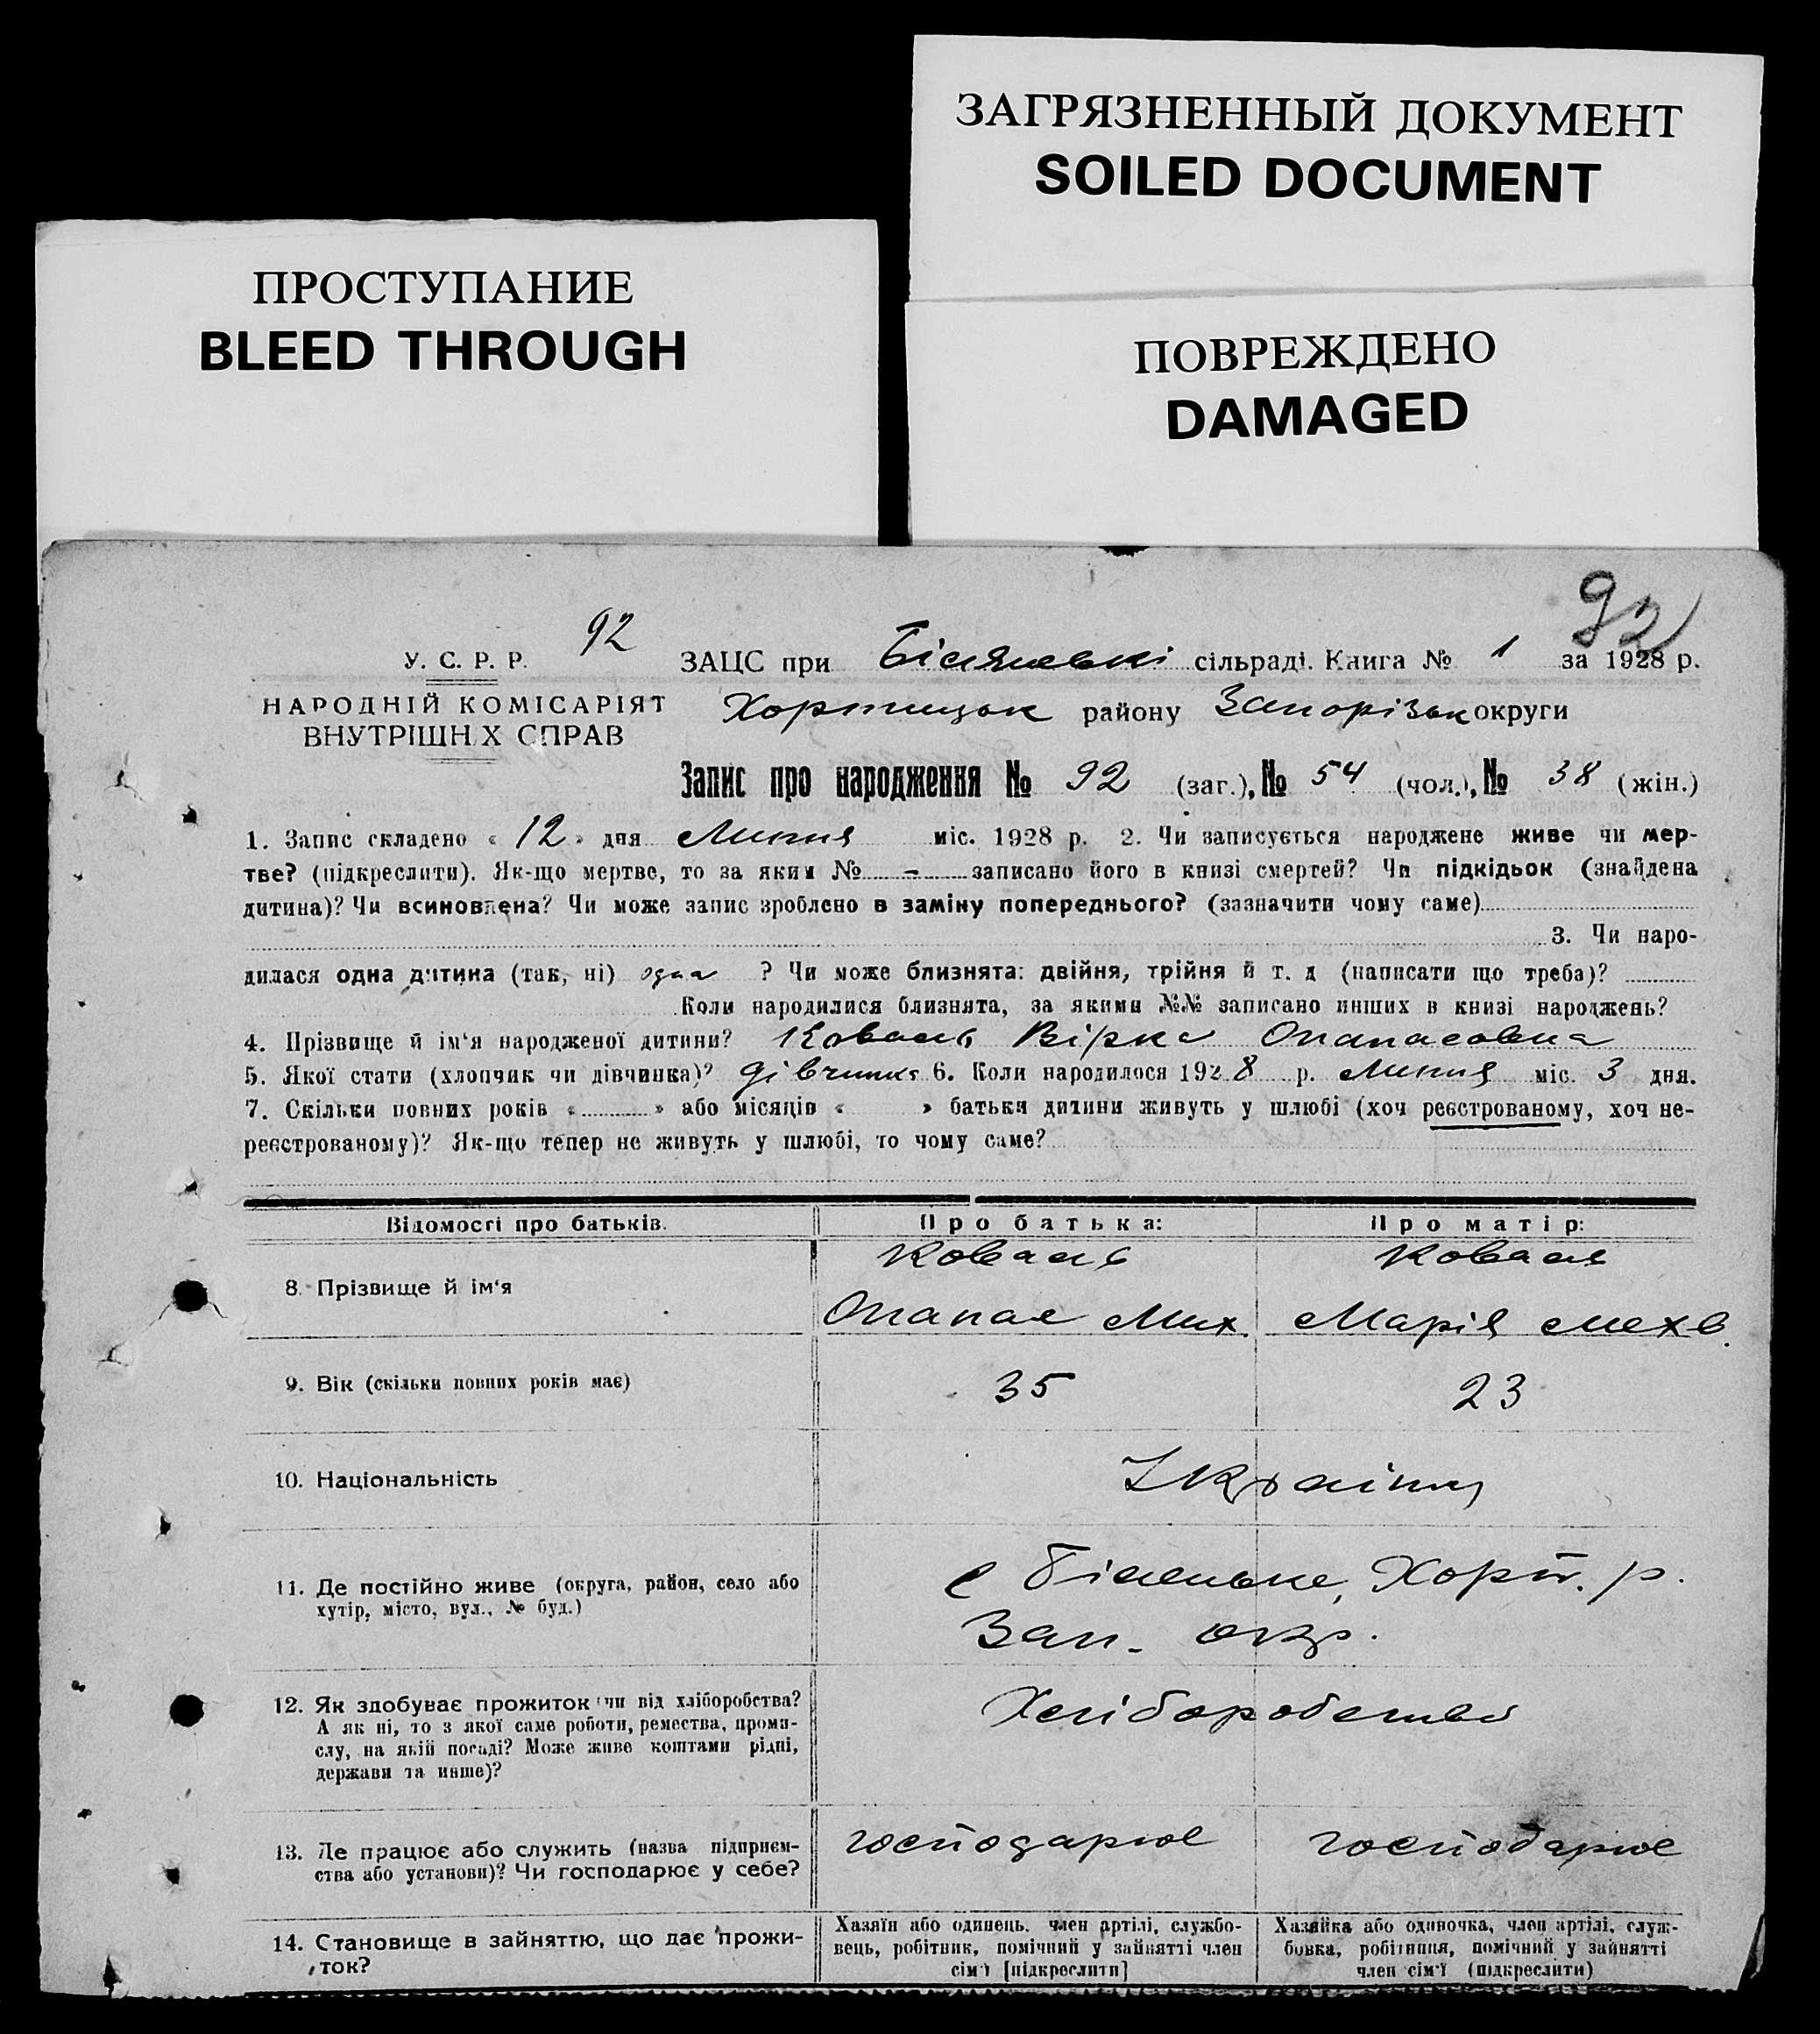 ЗАГРЯЗНЕННЫЙ ДОКУМЕНТ
SOILED DOCUMENT
ПРОСТУПАНИЕ
BLEED THROUGH
ПОВРЕЖДЕНО
DAMAGED
92
92
У. С. Р. Р.
НАРОДНІЙ КОМІСАРІЯТ
ВНУТРІШНІХ СПРАВ
ЗАЦС при Біляньські сільраді. Книга № 1 за 1928 р.
Хортицьк району Запорізьк округи
Запис про народження № 92 (заг.), № 54 (чол.), № 38 (жін.)
1. Запис складено « 12 » дня Липня міс. 1928 р. 2. Чи записується народжене живе чи мер-
тве? (підкреслити). Як-що мертве, то за яким № - записано його в книзі смертей? Чи підкідьок (знайдена
дитина)? Чи всиновлена? Чи може запис зроблено в заміну попереднього? (зазначити чому саме)
3. Чи наро-
дилася одна дитина (так, ні) одна ? Чи може близнята: двійня, трійня й т. д (написати що треба)?
Коли народилися близнята, за якими №№ записано инших в книзі народжень?
4. Прізвище й ім‘я народженої дитини? Коваль Вірка Опанасовна
5. Якої стати (хлопчик чи дівчинка)? дівчинка 6. Коли народилося 1928 р. Липня міс. 3 дня.
7. Скільки повних років « » або місяців « » батьки дитини живуть у шлюбі (хоч реєстрованому, хоч не-
реєстрованому)? Як-що тепер не живуть у шлюбі, то чому саме?
Відомості про батьків.
Про батька:
Про матір:
8. Прізвище й ім‘я
Коваль
Опанас Мих.
Коваль
Марія Мехв.
9. Вік (скільки повних років має)
35
23
10. Національність
Українці
11. Де постійно живе (округа, район, село або
хутір, місто, вул., № буд.)
с Біленьке, Хорт. р.
Зап. окр.
12. Як здобуває прожиток (чи від хліборобства?
А як ні, то з якої саме роботи, ремества, проми-
слу, на якій посаді? Може живе коштами рідні,
держави та инше)?
Хліборобство
13. Де працює або служить (назва підприєм-
ства або установи)? Чи господарює у себе?
господарює
господарює
14. Становище в зайняттю, що дає прожи-
ток?
Хазяїн або одинець, член артілі, службо-
вець, робітник, помічний у зайнятті член
сім‘ї [підкреслити]
Хазяйка або одиночка, член артілі, служ-
бовка, робітниця, помічний у зайнятті
член сім‘ї (підкреслити)